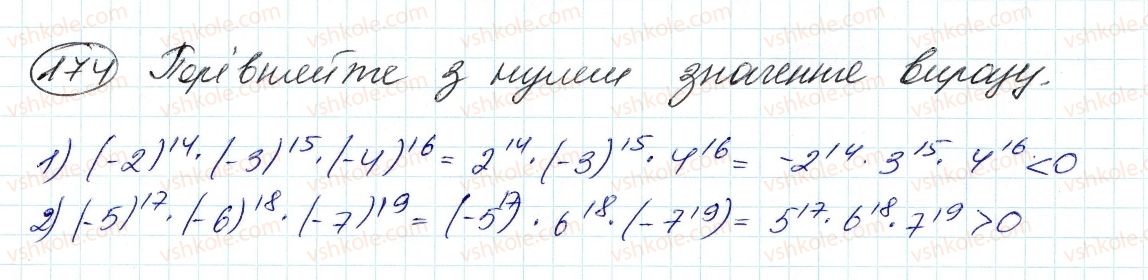 174 Порівняйте з нулем значення виразу.
1) (-2)¹⁴·(-3)¹⁵·(-4)¹⁶ = 2¹⁴·(-3)¹⁵·4¹⁶ = -2¹⁴·3¹⁵·4¹⁶<0
2) (-5)¹⁷·(-6)¹⁸·(-7)¹⁹ = (-5¹⁷)·6¹⁸·(-7¹⁹) = 5¹⁷·6¹⁸·7¹⁹>0